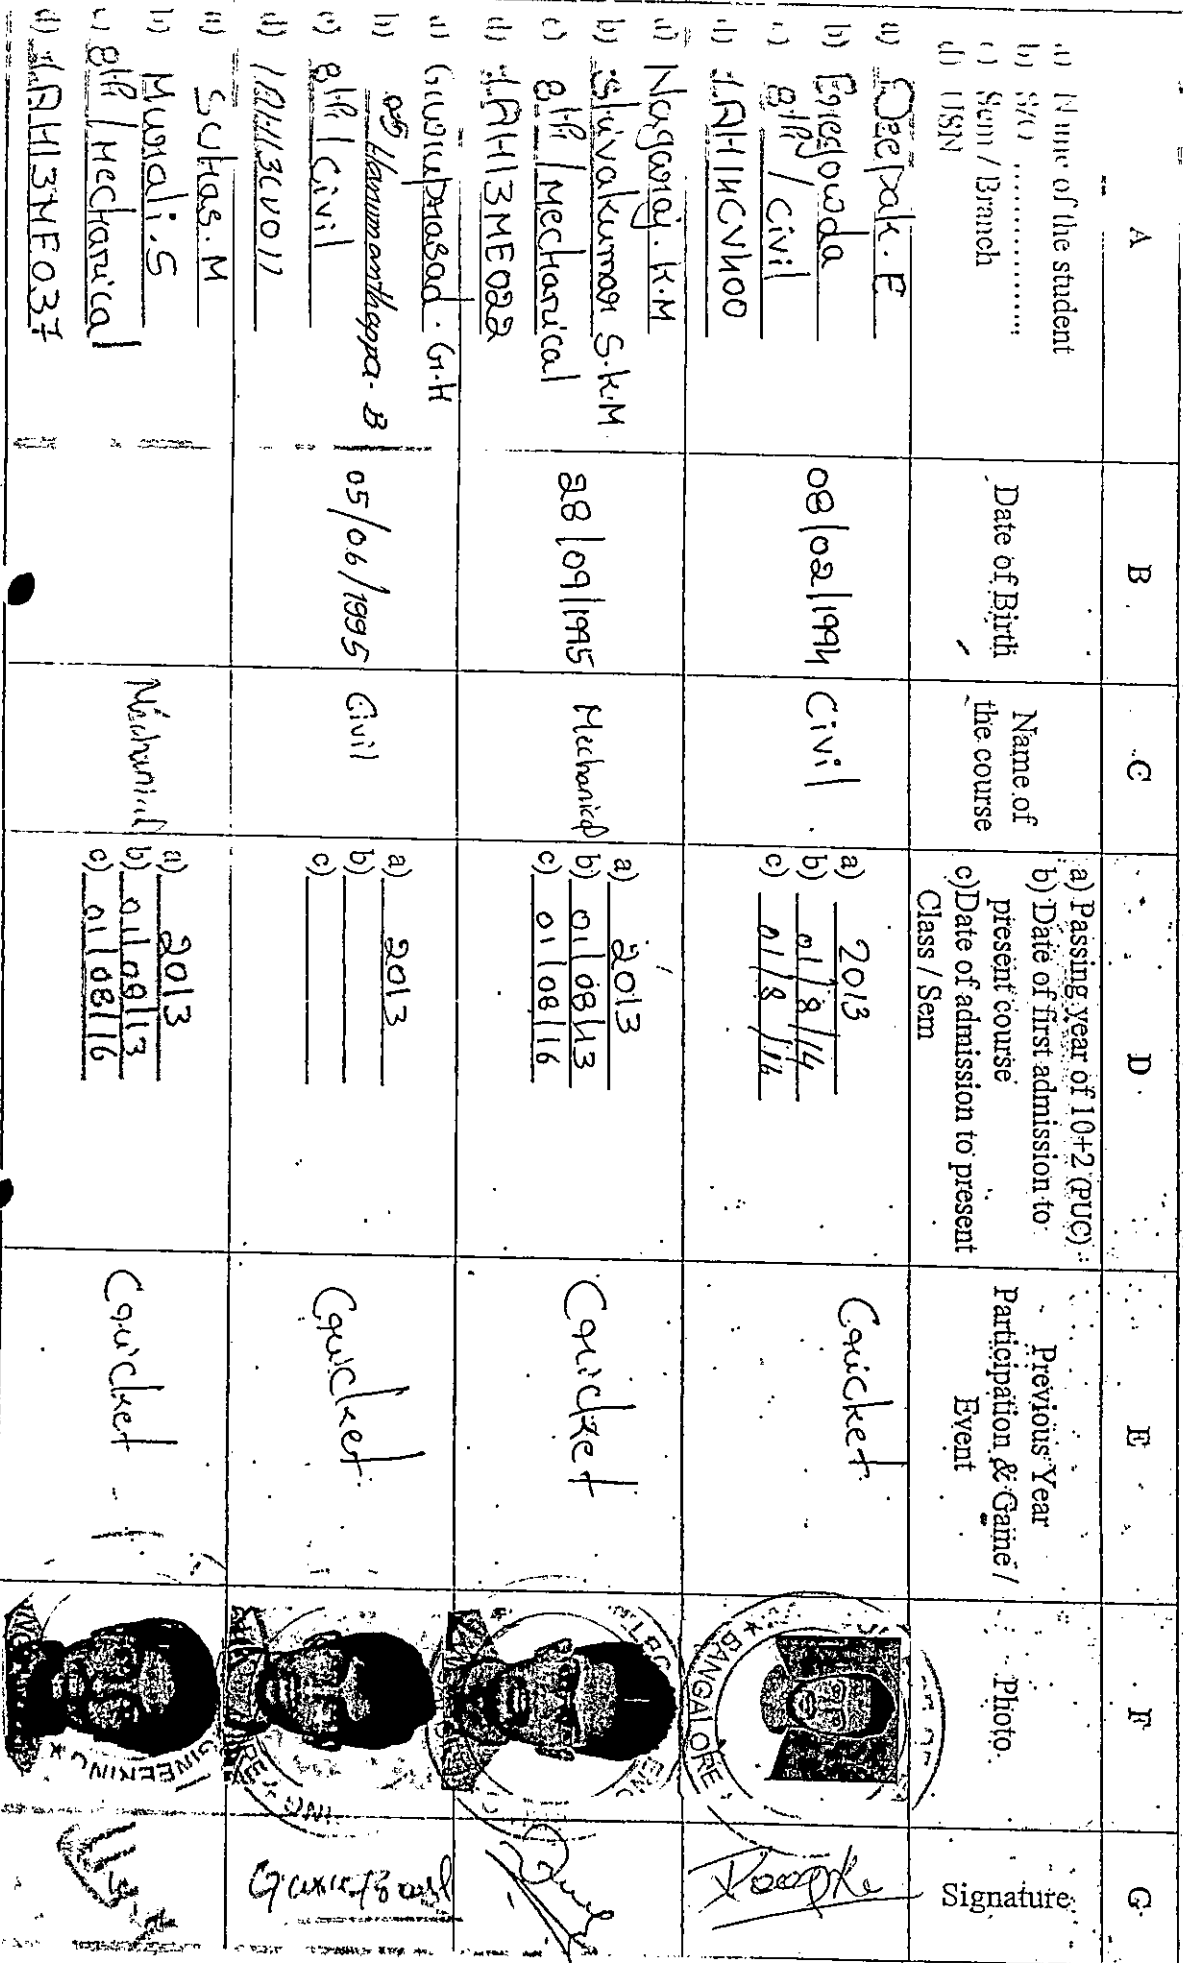 A B C D E F G
a) Name of the student
b) S/O ................
c) Sem / Branch
d) USN
Date of Birth
Name of
the course
a) Passing year of 10+2 (PUC)
b) Date of first admission to
present course
c) Date of admission to present
Class / Sem
Previous Year
Participation & Game /
Event
Photo
Signature
a) Deepak. E
b) Eregowda
c) 8th / Civil
d) 1AH14CV400
08/02/1994
Civil
a) 2013
b) 01/8/14
c) 01/8/14
Cricket
BANGALORE
a) Nagaraj. K.M
b) Shivakumar S.K.M
c) 8th / Mechanical
d) 1AH13ME022
28/09/1995
Mechanical
a) 2013
b) 01/08/13
c) 01/08/16
Cricket
a) Guruprasad. G.H
b) Hanumanthappa. B
c) 8th / Civil
d) 1AH13CV011
05/06/1995
Civil
a) 2013
b)
c)
Cricket
Guruprasad
a) Suhas. M
b) Murali. S
c) 8th / Mechanical
d) 1AH13ME037
Mechanical
a) 2013
b) 01/08/13
c) 01/08/16
Cricket